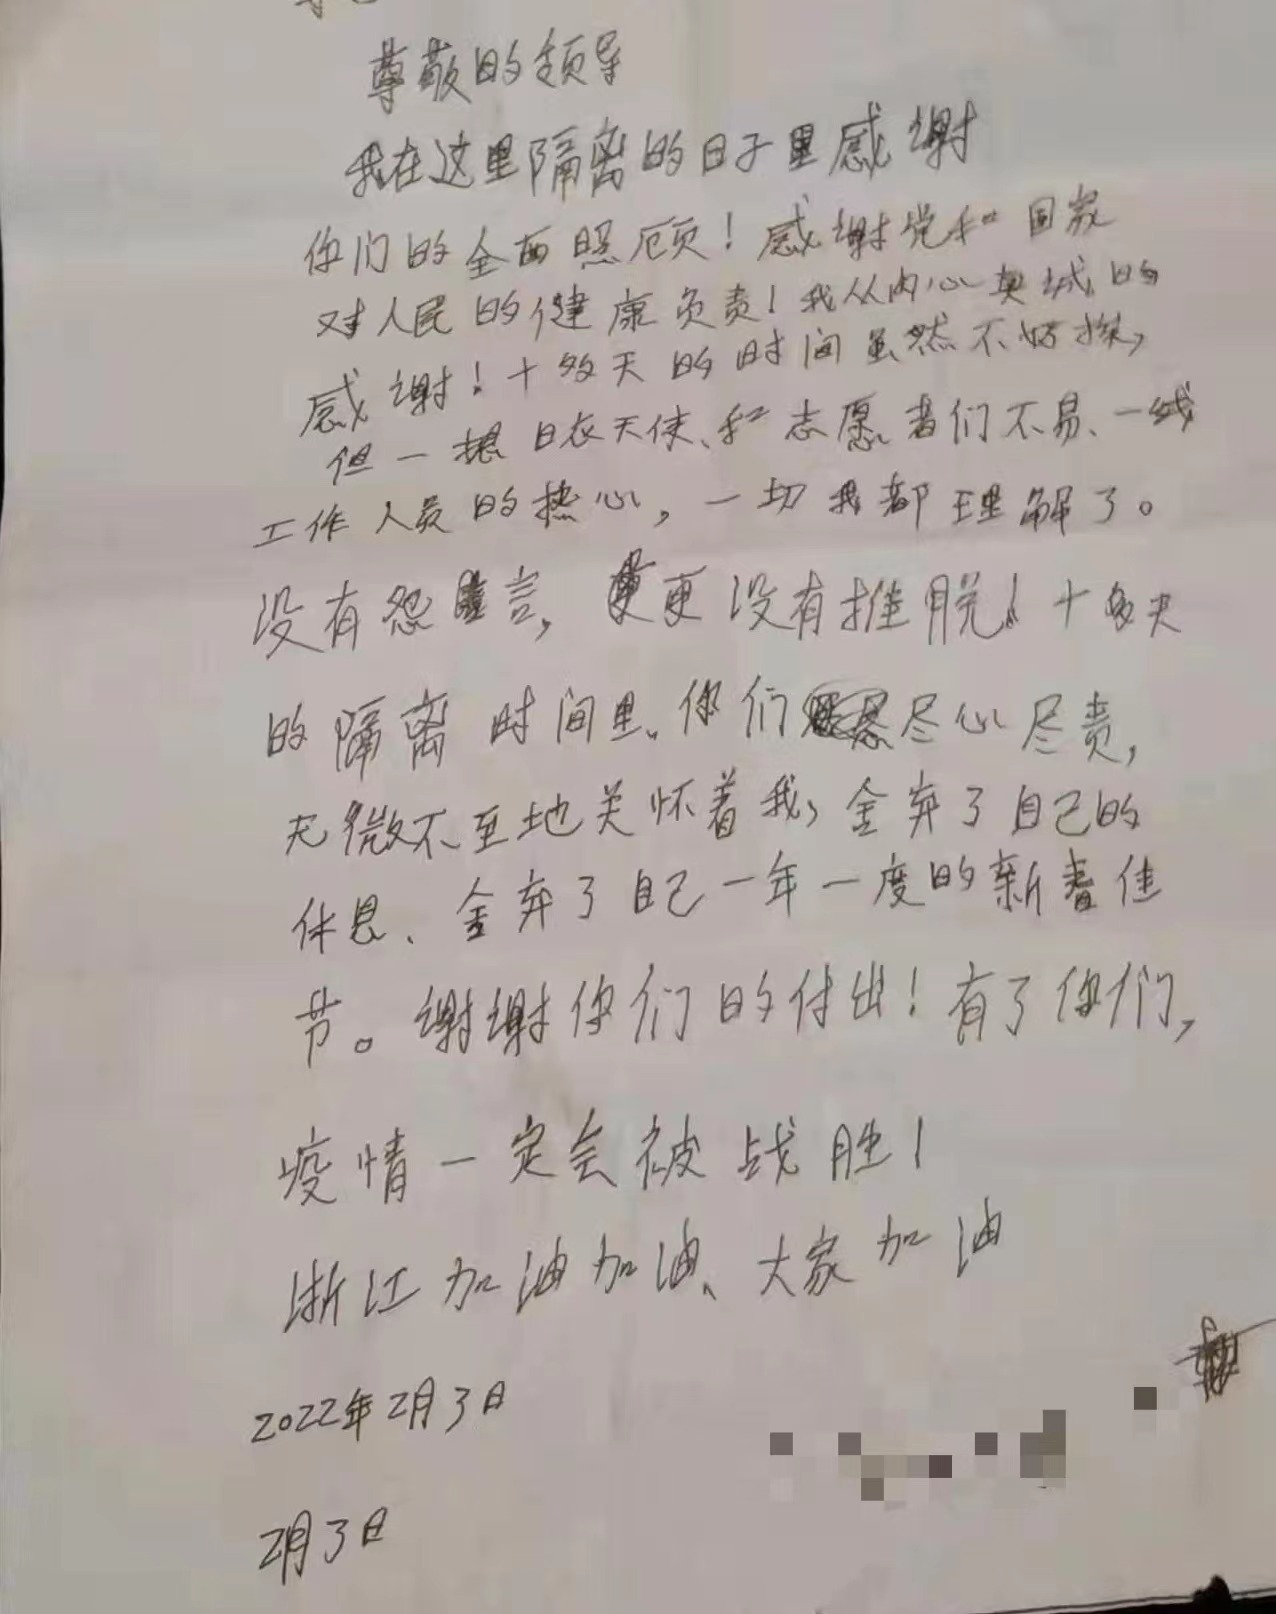 尊敬的领导
我在这里隔离的日子里感谢
你们的全面照顾！感谢党和国家
对人民的健康负责！我从内心真诚的
感谢！十数天的时间虽然不好挨，
但一想白衣天使、和志愿者们不易、一线
工作人员的热心，一切我都理解了。
没有怨言，更没有推脱！十多天
的隔离时间里、你们尽心尽责，
无微不至地关怀着我，舍弃了自己的
休息、舍弃了自己一年一度的新春佳
节。谢谢你们的付出！有了你们，
疫情一定会被战胜！
浙江加油加油、大家加油
2022年2月3日
2月3日